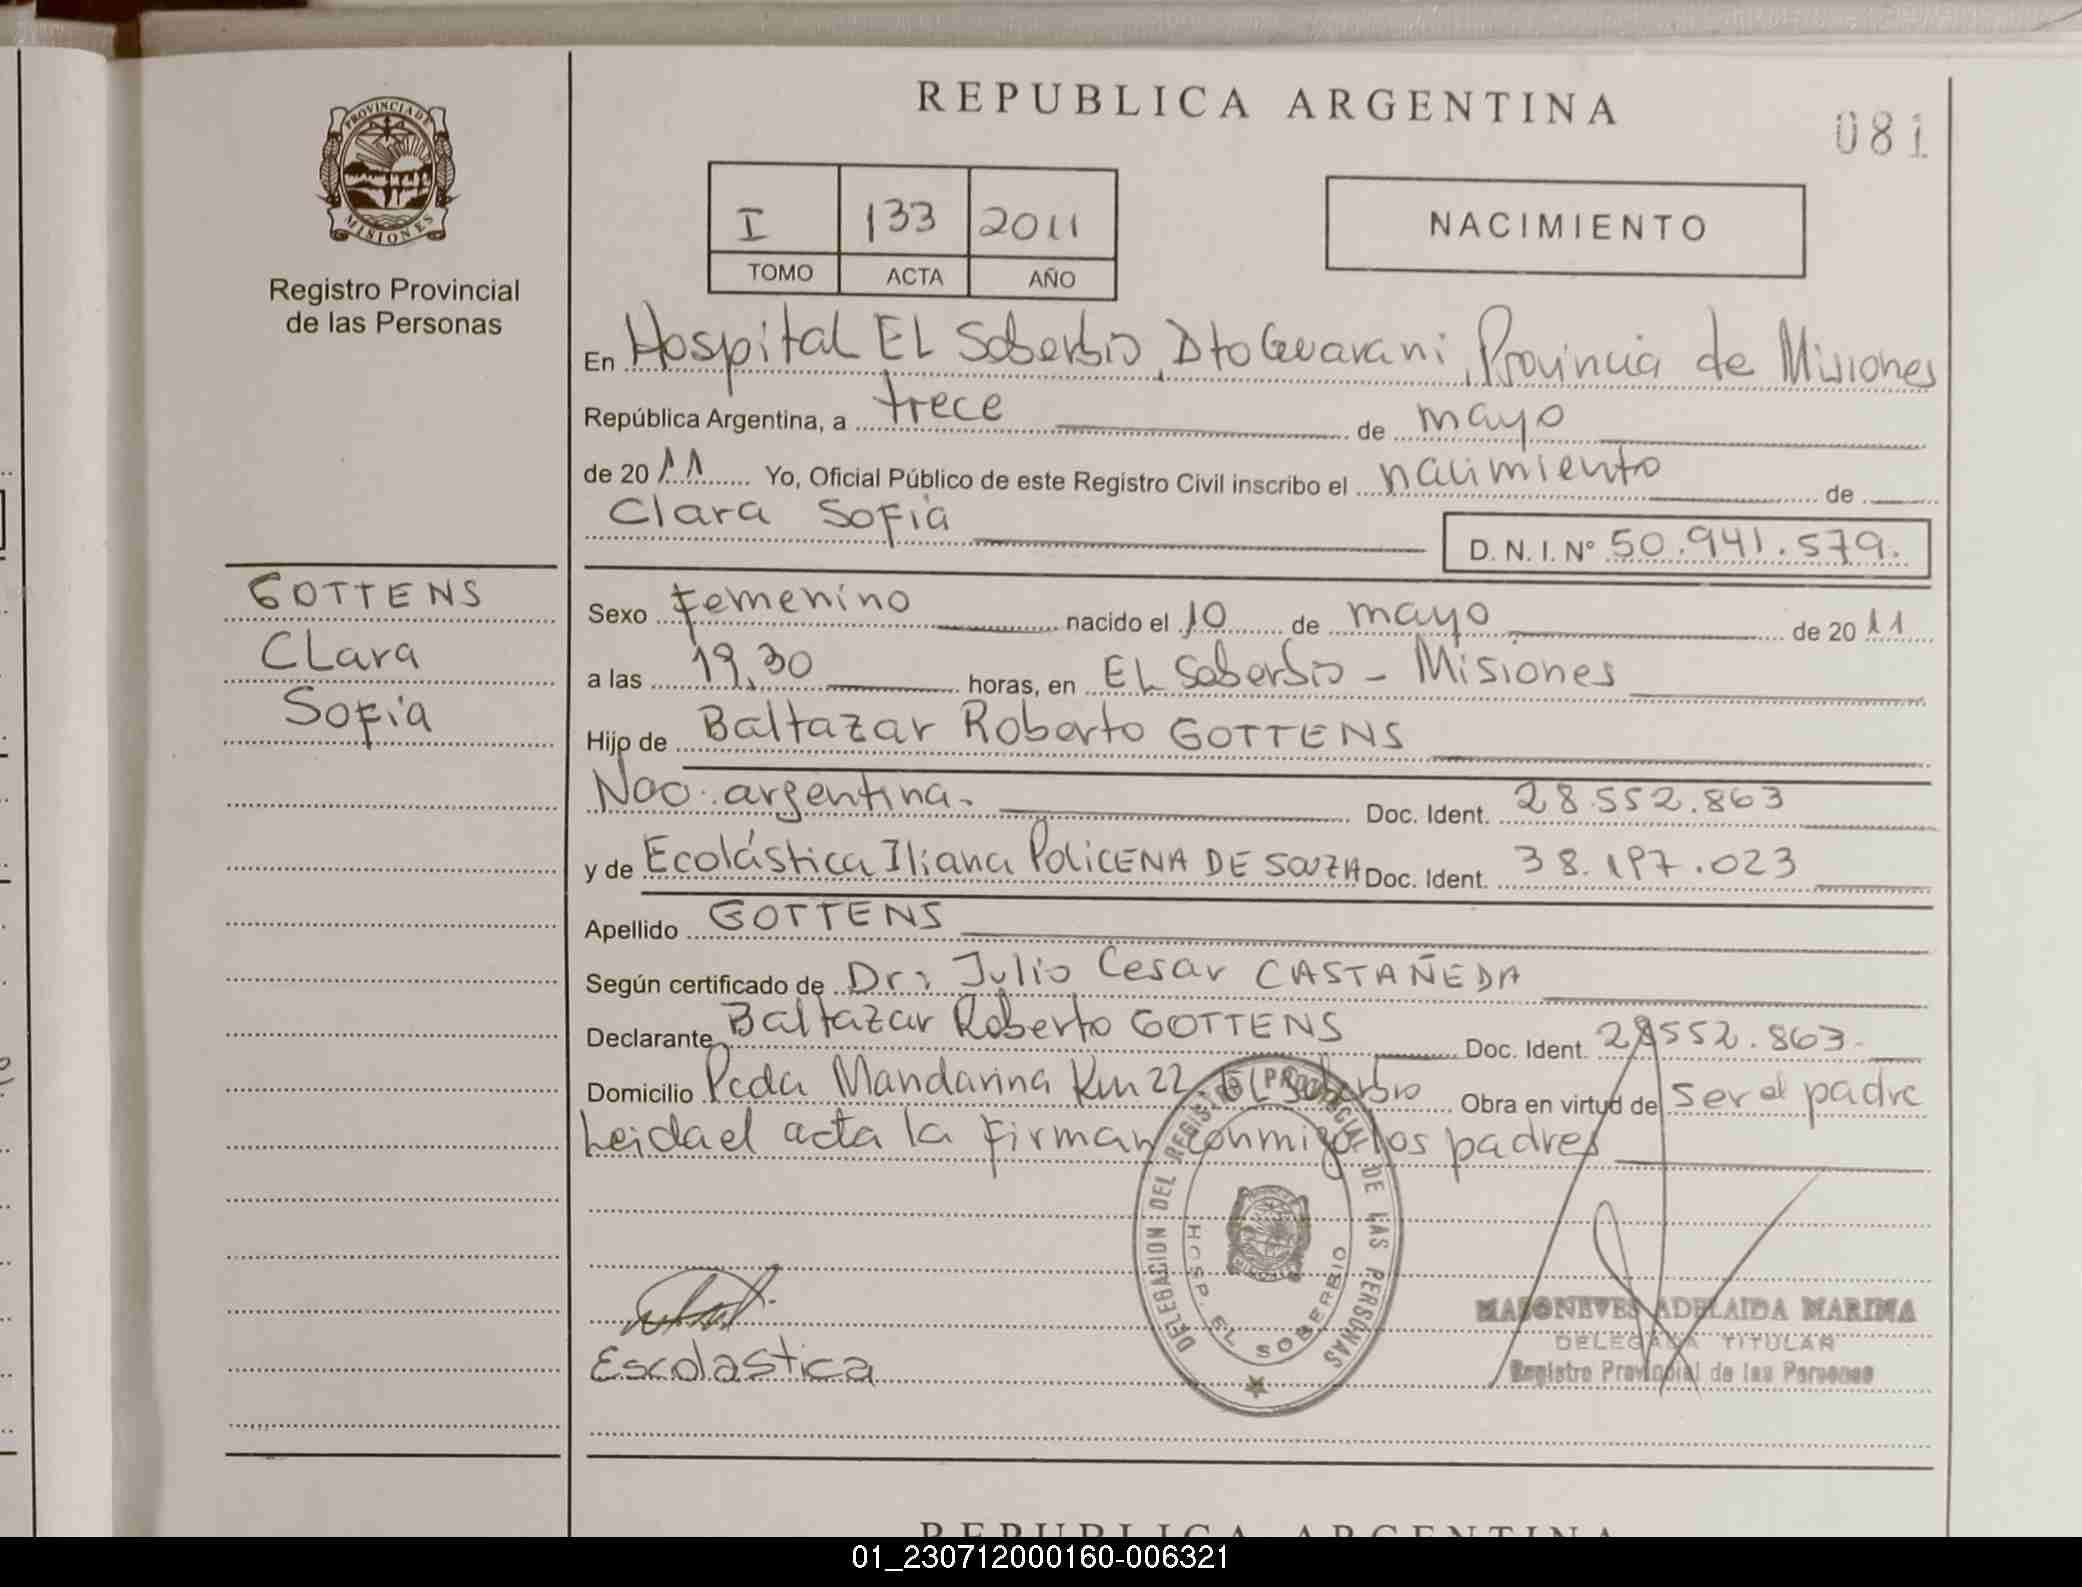 REPUBLICA ARGENTINA
081
PROVINCIA DE
MISIONES
Registro Provincial
de las Personas
I 133 2011
TOMO ACTA AÑO
NACIMIENTO
En Hospital EL Soberbio, Dto Guarani, Provincia de Misiones
República Argentina, a trece de mayo
de 2011 Yo, Oficial Público de este Registro Civil inscribo el nacimiento de
Clara Sofia
D. N. I. Nº 50.941.579.
GOTTENS
Clara
Sofia
Sexo Femenino nacido el 10 de mayo de 2011
a las 19,30 horas, en EL Soberbio - Misiones
Hijo de Baltazar Roberto GOTTENS
Nac. argentina. Doc. Ident. 28.552.863
y de Ecolástica Iliana POLICENA DE SOUZA Doc. Ident. 38.197.023
Apellido GOTTENS
Según certificado de Dr: Julio Cesar CASTAÑEDA
Declarante Baltazar Roberto GOTTENS Doc. Ident. 28552.863.
Domicilio Pcda Mandarina Km 22 EL Soberbio Obra en virtud de ser el padre
Leida el acta la firman conmigo los padres
DELEGACION DEL REGISTRO PROVINCIAL DE LAS PERSONAS
HOSP. EL SOBERBIO
Escolastica
ADELAIDA MARINA
DELEGADA TITULAR
Registro Provincial de las Personas
REPUBLICA ARGENTINA
01_230712000160-006321